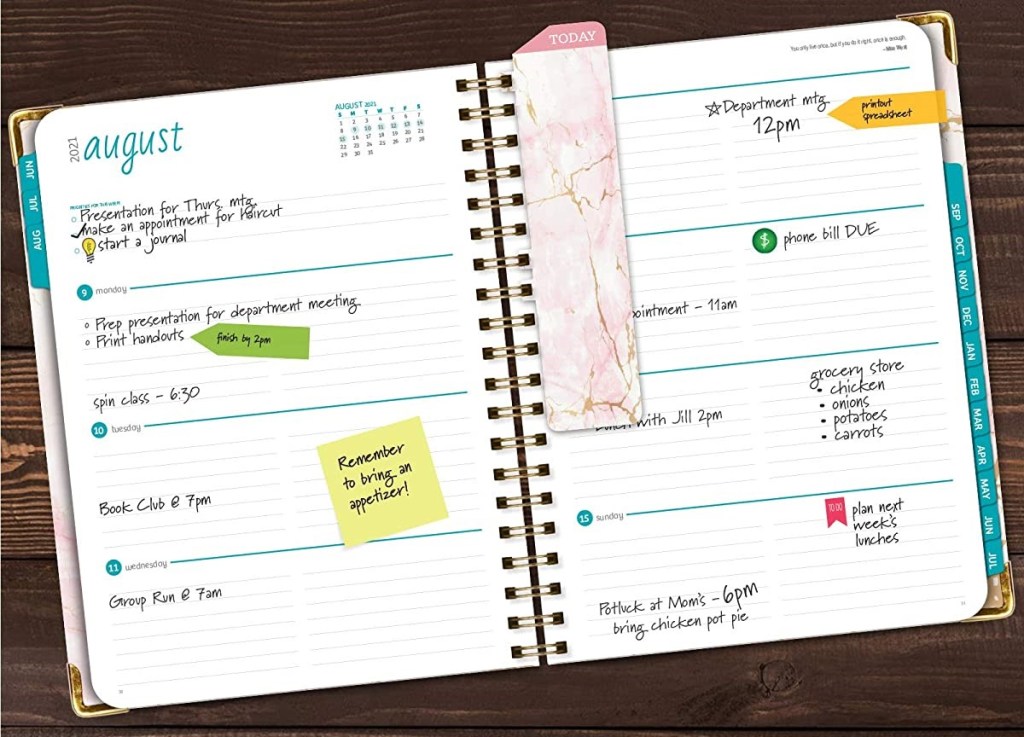 2021
august
AUGUST 2021
S M T W T F S
1 2 3 4 5 6 7
8 9 10 11 12 13 14
15 16 17 18 19 20 21
22 23 24 25 26 27 28
29 30 31
Presentation for Thurs. mtg.
make an appointment for Haircut
start a journal
9 monday
Prep presentation for department meeting
Print handouts
finish by 2pm
spin class - 6:30
10 tuesday
Remember
to bring an
appetizer!
Book Club @ 7pm
11 wednesday
Group Run @ 7am
JUN
JUL
AUG
TODAY
You only live once, but if you do it right, once is enough.
—Mae West
Department mtg
12pm
printout
spreadsheet
$ phone bill DUE
ointment - 11am
with Jill 2pm
grocery store
• chicken
• onions
• potatoes
• carrots
15 sunday
TO DO
plan next
week's
lunches
Potluck at Mom's - 6pm
bring chicken pot pie
SEP
OCT
NOV
DEC
JAN
FEB
MAR
APR
MAY
JUN
JUL